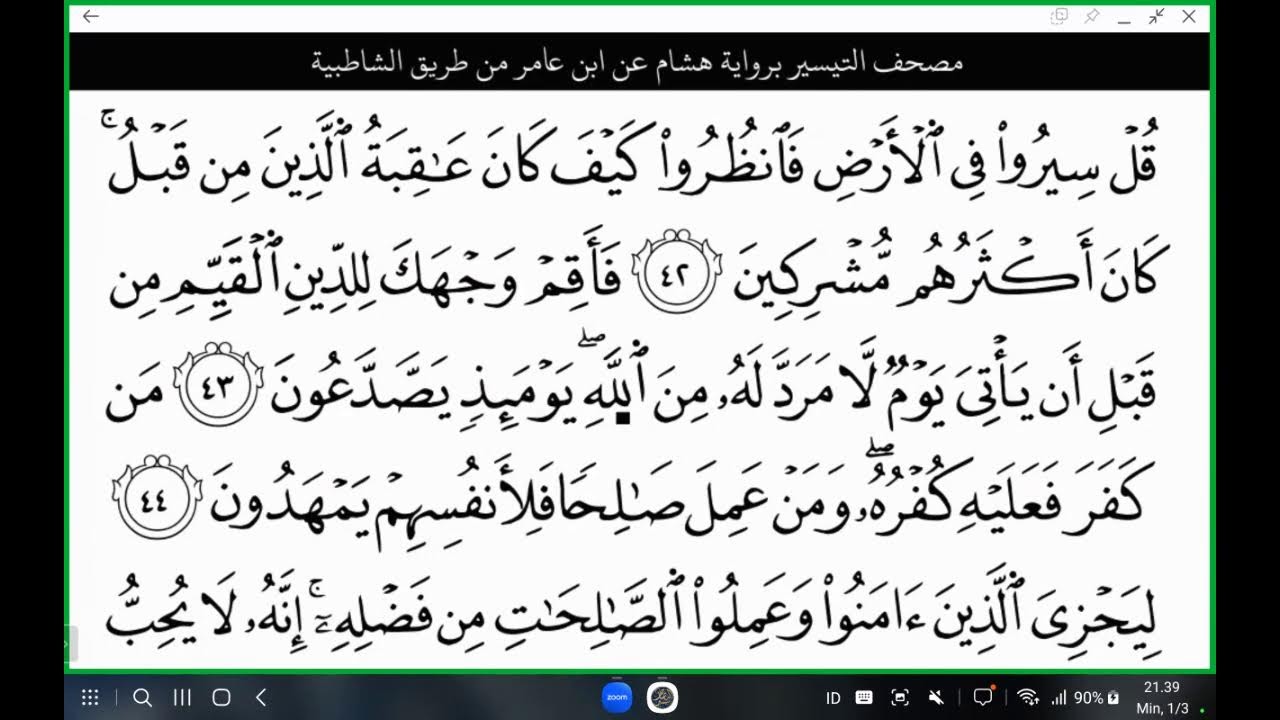 مصحف التيسير برواية هشام عن ابن عامر من طريق الشاطبية
قُلۡ سِيرُواْ فِي ٱلۡأَرۡضِ فَٱنظُرُواْ كَيۡفَ كَانَ عَٰقِبَةُ ٱلَّذِينَ مِن قَبۡلُۚ
كَانَ أَكۡثَرُهُم مُّشۡرِكِينَ ٤٢ فَأَقِمۡ وَجۡهَكَ لِلدِّينِ ٱلۡقَيِّمِ مِن
قَبۡلِ أَن يَأۡتِيَ يَوۡمٞ لَّا مَرَدَّ لَهُۥ مِنَ ٱللَّهِۖ يَوۡمَئِذٖ يَصَّدَّعُونَ ٤٣ مَن
كَفَرَ فَعَلَيۡهِ كُفۡرُهُۥۖ وَمَنۡ عَمِلَ صَٰلِحٗا فَلِأَنفُسِهِمۡ يَمۡهَدُونَ ٤٤
لِيَجۡزِيَ ٱلَّذِينَ ءَامَنُواْ وَعَمِلُواْ ٱلصَّٰلِحَٰتِ مِن فَضۡلِهِۦٓۚ إِنَّهُۥ لَا يُحِبُّ
zoom
ID
90%
21.39
Min, 1/3